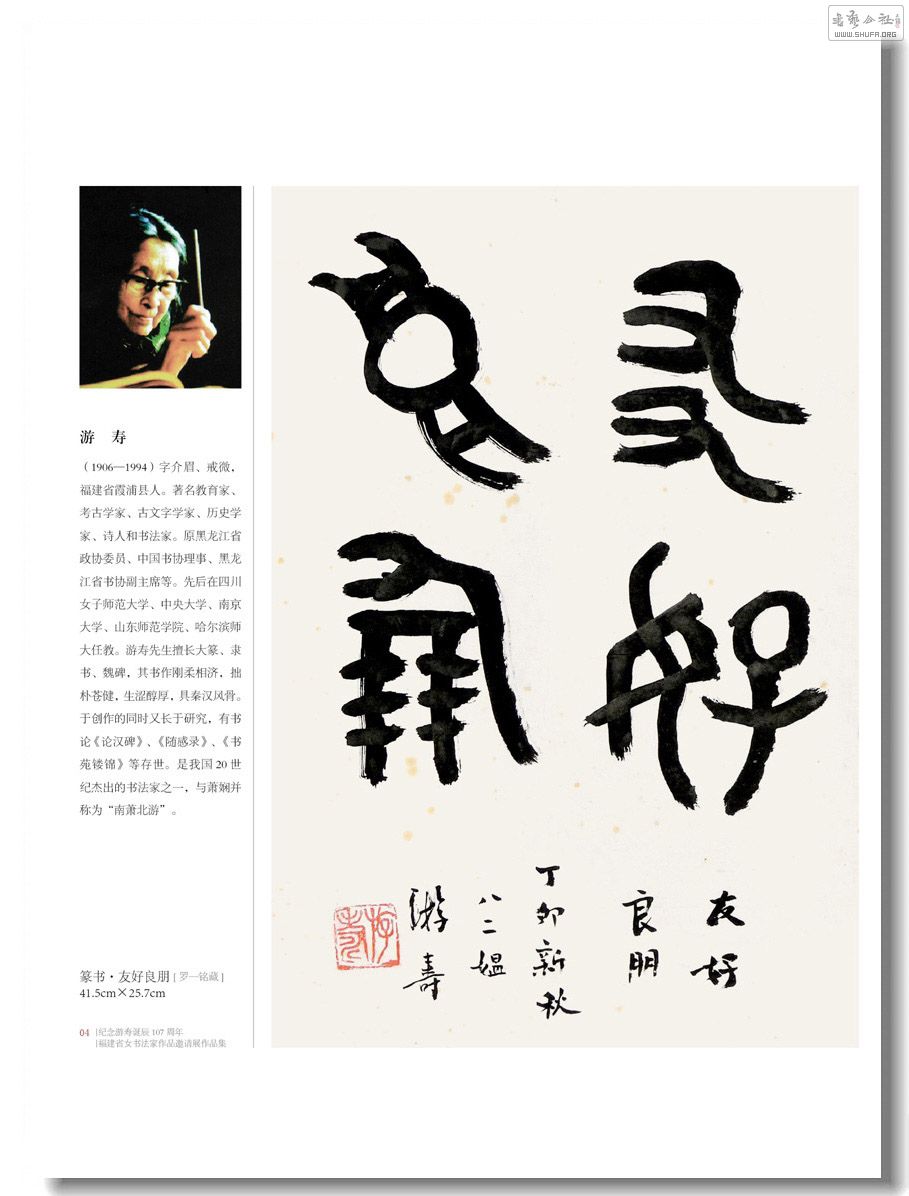 书艺公社
WWW.SHUFA.ORG
游 寿
（1906—1994）字介眉、戒微，
福建省霞浦县人。著名教育家、
考古学家、古文字学家、历史学
家、诗人和书法家。原黑龙江省
政协委员、中国书协理事、黑龙
江省书协副主席等。先后在四川
女子师范大学、中央大学、南京
大学、山东师范学院、哈尔滨师
大任教。游寿先生擅长大篆、隶
书、魏碑，其书作刚柔相济，拙
朴苍健，生涩醇厚，具秦汉风骨。
于创作的同时又长于研究，有书
论《论汉碑》、《随感录》、《书
苑镂锦》等存世。是我国 20 世
纪杰出的书法家之一，与萧娴并
称为“南萧北游”。
友好
良朋
友好
良朋
丁卯新秋
八二媪
游寿
游寿
篆书·友好良朋［罗一铭藏］
41.5cm×25.7cm
04 |纪念游寿诞辰 107 周年
|福建省女书法家作品邀请展作品集